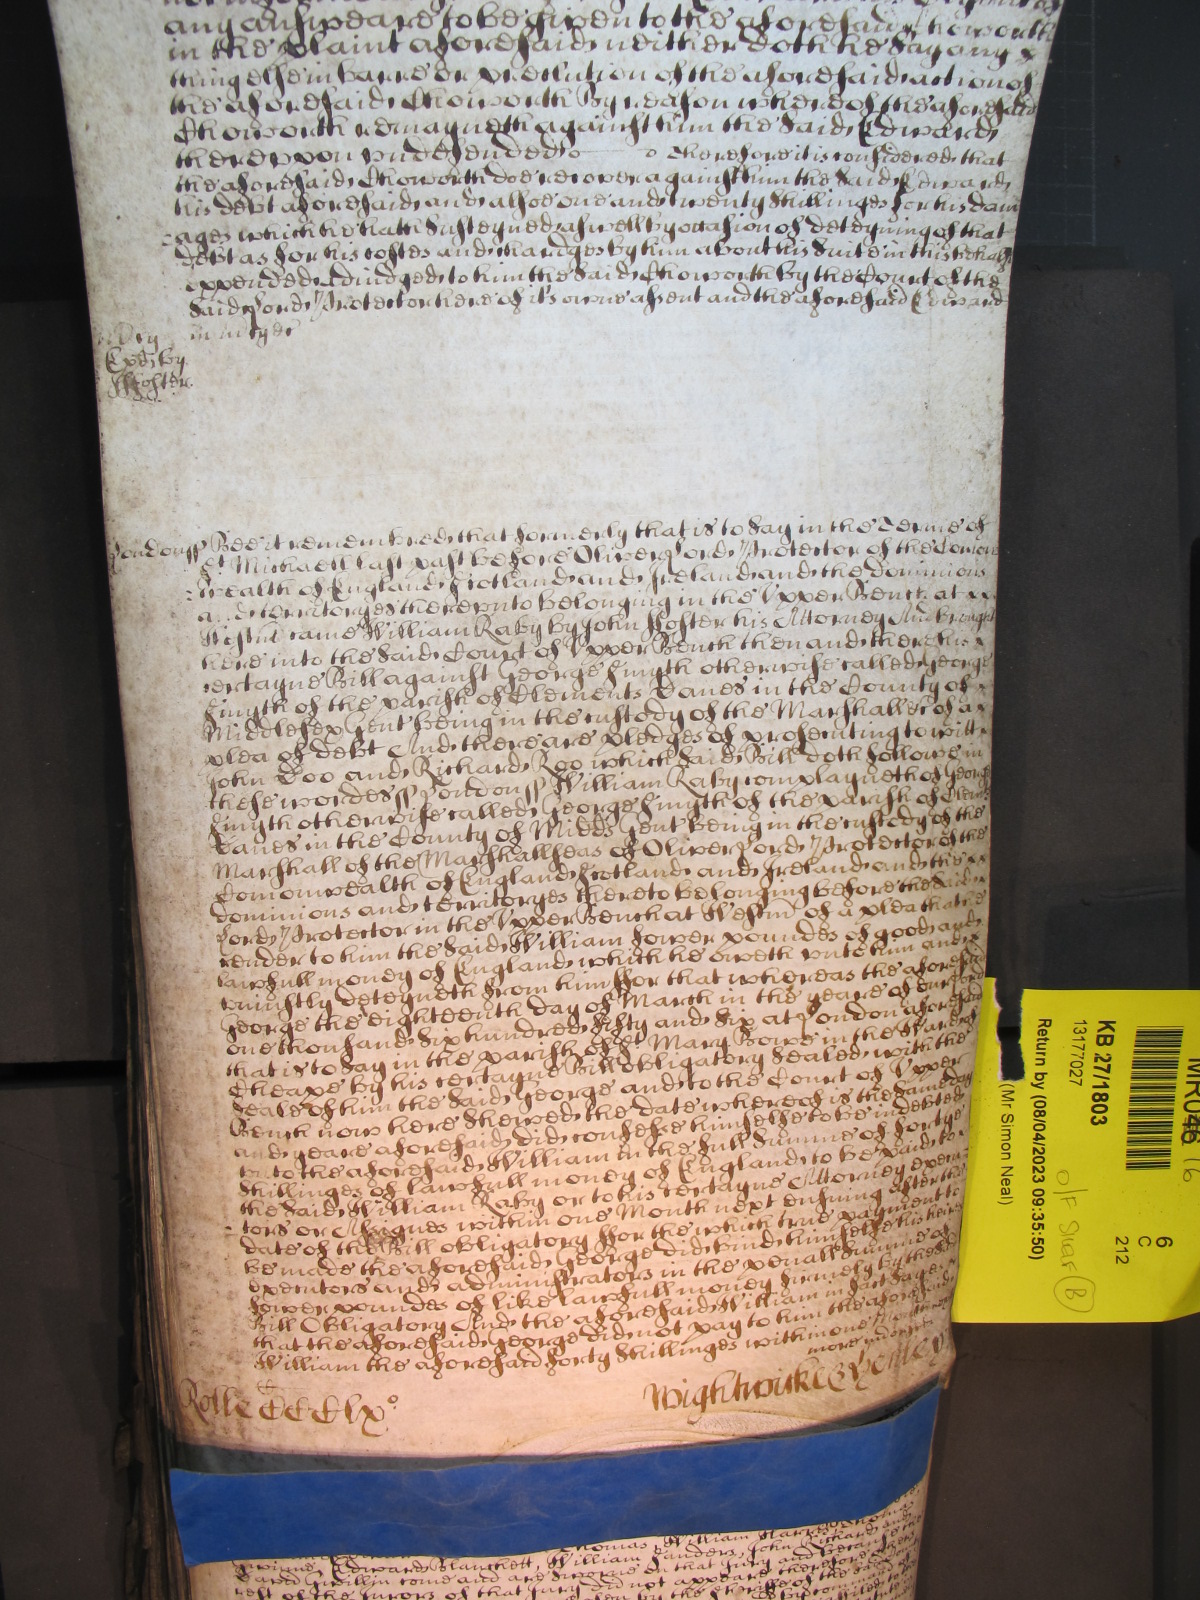 any answeare to be given to the aforesaid Choworth
in the plaint aforesaid neither doth he say any
thing else in barre or preclution of the aforesaid action of
the aforesaid Choworth By reason whereof the aforesaid
Choworth remayneth against him the said Edward
thereupon undefended Therefore it is considered that
the aforesaid Choworth doe recover against him the said Edward
his debt aforesaid and alsoe one and twenty shillinges for his dam
ages which he hath susteyned aswell by occasion of deteyning of that
debt as for his costes and chardges by him about his suite in this behalf
expended adiudged to him the said Choworth by the Court of the
said Lord Protector here of its owne assent and the aforesaid Edward
in mercy &c
London ss Bee it remembred that formerly that is to say in the Terme of
St Michaell last past before Oliver Lord Protector of the Comon
wealth of England Scotland and Ireland and the dominions
and territoryes thereunto belonging in the Upper Bench at
Westm came William Raby by John Foster his Attorney And brought
here into the said Court of Upper Bench then and there his
certayne Bill against George Smyth otherwise called George
Smyth of the parish of Clements Danes in the County of
Middlesex Gent being in the custody of the Marshall &c of a
plea of debt And there are pledges of prosecuting to witt
John Doo and Richard Roo which said Bill doth followe in
these wordes ss London ss William Raby complayneth of George
Smyth otherwise called George Smyth of the parish of Clements
Danes in the County of Midds Gent being in the custody of the
Marshall of the Marshallseas of Oliver Lord Protector of the
Comonwealth of England Scotland and Ireland and the
dominions and territoryes thereto belonging before the said
Lord Protector in the Upper Bench at Westm of a plea that he
render to him the said William fower poundes of good and
lawfull money of England which he oweth unto him and
uniustly deteyneth from him For that whereas the aforesaid
George the eighteenth day of March in the yeare of our Lord
one thousand six hundred fifty and six at London aforesaid
that is to say in the parish of St Mary Bowe in the Ward of
Cheape by his certayne Bill obligatory sealed with the
seale of him the said George and to the Court of Upper
Bench now here shewed the date whereof is the same day
and yeare aforesaid did confesse himselfe to be indebted
unto the aforesaid William in the full summe of fortye
shillinges of lawfull money of England to be paid to
the said William Raby or to his certayne Attorney execu
tors or Assignes within one Month next ensuing after the
date of the Bill obligatory For the which true payment to
be made the aforesaid George did bind himselfe his heires
executors and administrators in the penall summe of
fower poundes of like lawfull money firmely by the said
Bill Obligatory And the aforesaid William in fact sayes
that the aforesaid George did not pay to him the aforesaid
William the aforesaid forty shillinges within one Month
more
Rolle CCCClx°
Wightwicke &
William
Edward Blanchett, William Sanders, John
David Gwillin come and are sworne on that Jury and because the
rest of the Jurors of that Jury did not appeare therefore others
KB 27/1803
13177027
Return by (08/04/2023 09:35:50)
(Mr Simon Neal)
6
C
212
O/F Shelf B